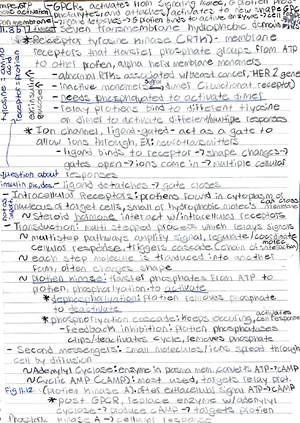 - GPCR: activates from signaling molec, G protein
activates, G protein binds to active enzyme → cell
Seven transmembrane hydrophobic
* Receptor tyrosine kinase (RTK): membrane
receptors that transfer phosphate groups from ATP
to other protien, alpha helix membrane monomers
- abnormal RTKs associated w/ breast cancer, HER 2 gene
- inactive monomer → dimer (functional receptor)
- needs phosphorylated to activate dimer
- relay protiens bind to different tyrosine
on dimer to activate different/multiple responses
* Ion channel, ligand-gated - act as a gate to
allow ions through, EX: neurotransmitters
- ligand binds to receptor → shape changes →
gates open → ions come in → multiple cellular
responses
question about
insulin
- ligand detatches → gate closes
- Intracellular Receptors: protiens found in cytoplasm or
nucleus of target cells, small or hydrophobic molecules
~ steroid hormone interact w/ intracellular receptors
- Transduction: multi stepped process which relays signals
~ multistep pathways amplify signal, regulate/coordinate
cellular response, triggers cascade/chain of molecule interaction
~ each step molecule is transduced into another
form, often changes shape
~ protien kinase: transfer phosphates from ATP to
protien, phosphorylation to activate
* dephosphorylation: protien removes phosphate
to deactivate
* phosphorylation cascade: keeps occuring,
- Feedback inhibition: protien phosphatases
clips/deactivates cycle, removes phosphate
- Second messengers: small molecules/ions spread through
cell by diffusion
~ Adenylyl cyclase: enzyme in plasma mem. converts ATP → cAMP
~ Cyclic AMP (cAMP): most used, targets relay prot.
Fig 11.12
(protien kinase A) after extracellular signal ATP → cAMP
* post GPCR, replace enzyme w/ adenylyl
cyclase → produce cAMP → targets protien
kinase A → cellular response